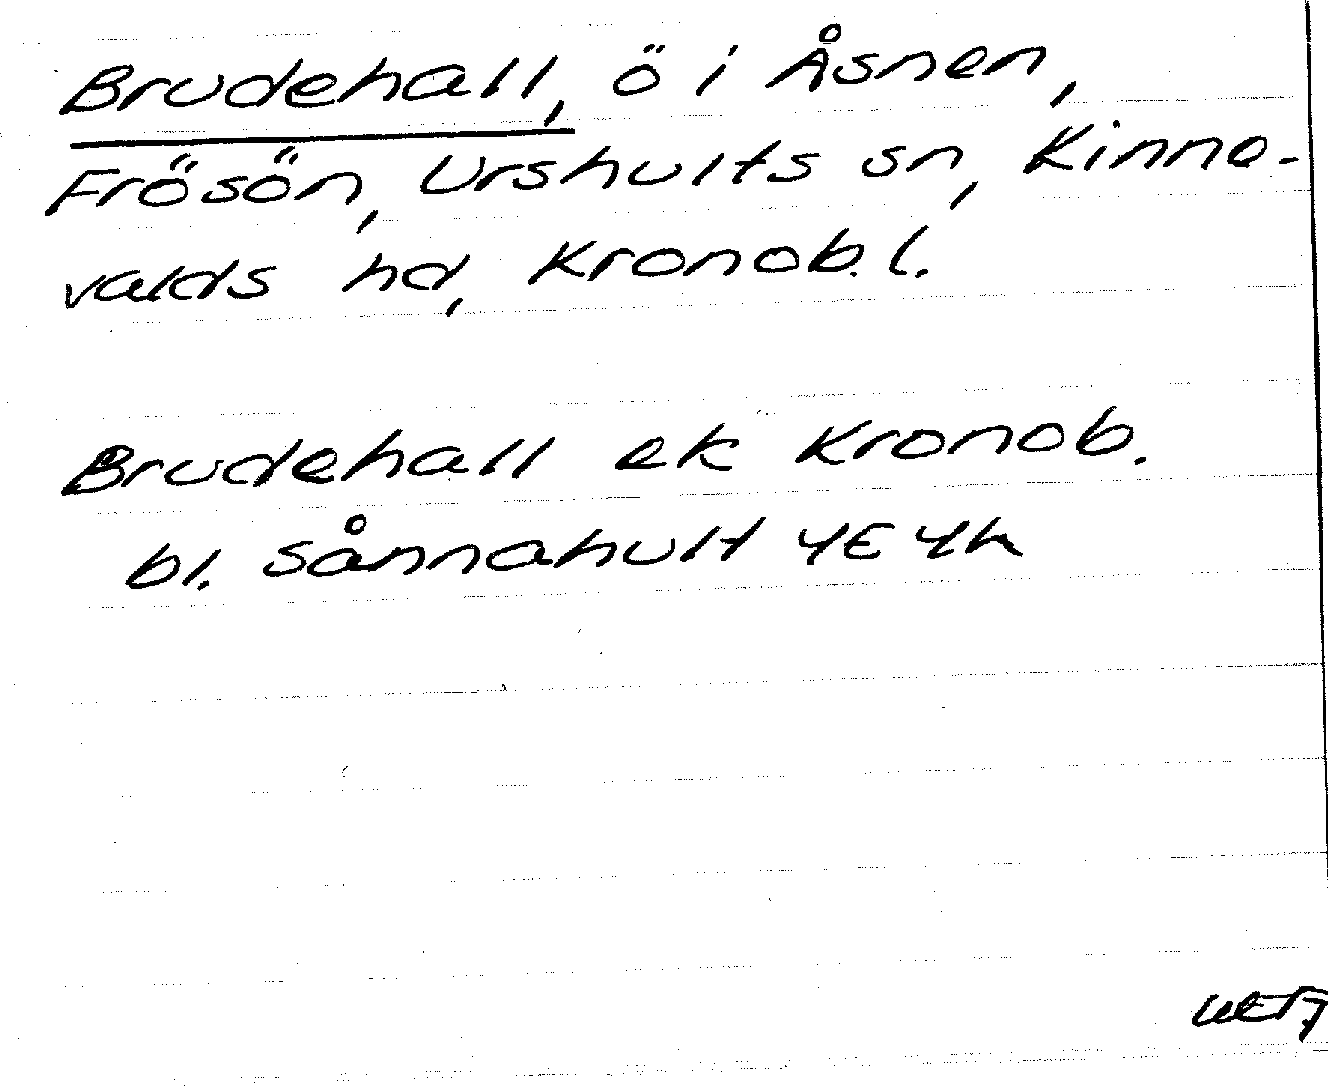 Brudehall, ö i Åsnen,
Frösön, Urshults sn, Kinne-
valds hd, Kronob. l.
Brudehall ek Kronob.
bl. Sånnahult 4E 4h